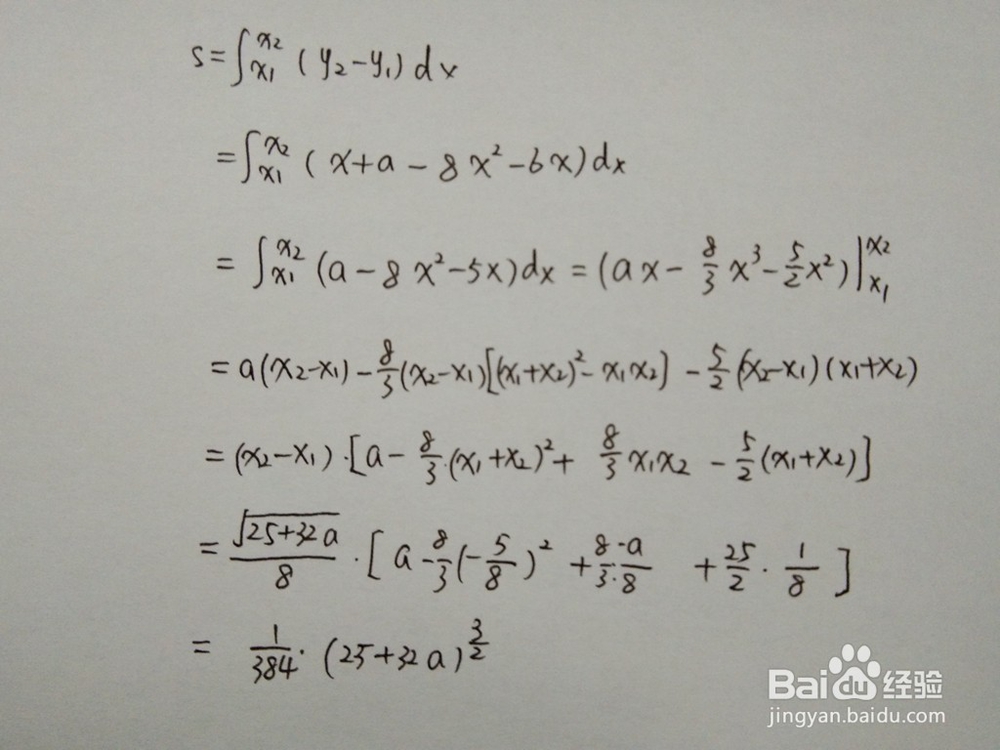 S=∫_{x₁}^{x₂} (y₂-y₁) dx
=∫_{x₁}^{x₂} (x+a-8x²-6x)dx
=∫_{x₁}^{x₂} (a-8x²-5x)dx=(ax-\frac{8}{3}x³-\frac{5}{2}x²)|_{x₁}^{x₂}
=a(x₂-x₁)-\frac{8}{3}(x₂-x₁)[(x₁+x₂)²-x₁x₂]-\frac{5}{2}(x₂-x₁)(x₁+x₂)
=(x₂-x₁)·[a-\frac{8}{3}(x₁+x₂)²+\frac{8}{3}x₁x₂-\frac{5}{2}(x₁+x₂)]
=\frac{\sqrt{25+32a}}{8}·[a-\frac{8}{3}(-\frac{5}{8})²+\frac{8·-a}{3·8}+\frac{25}{2}·\frac{1}{8}]
=\frac{1}{384}·(25+32a)^{\frac{3}{2}}
Baidu经验
jingyan.baidu.com